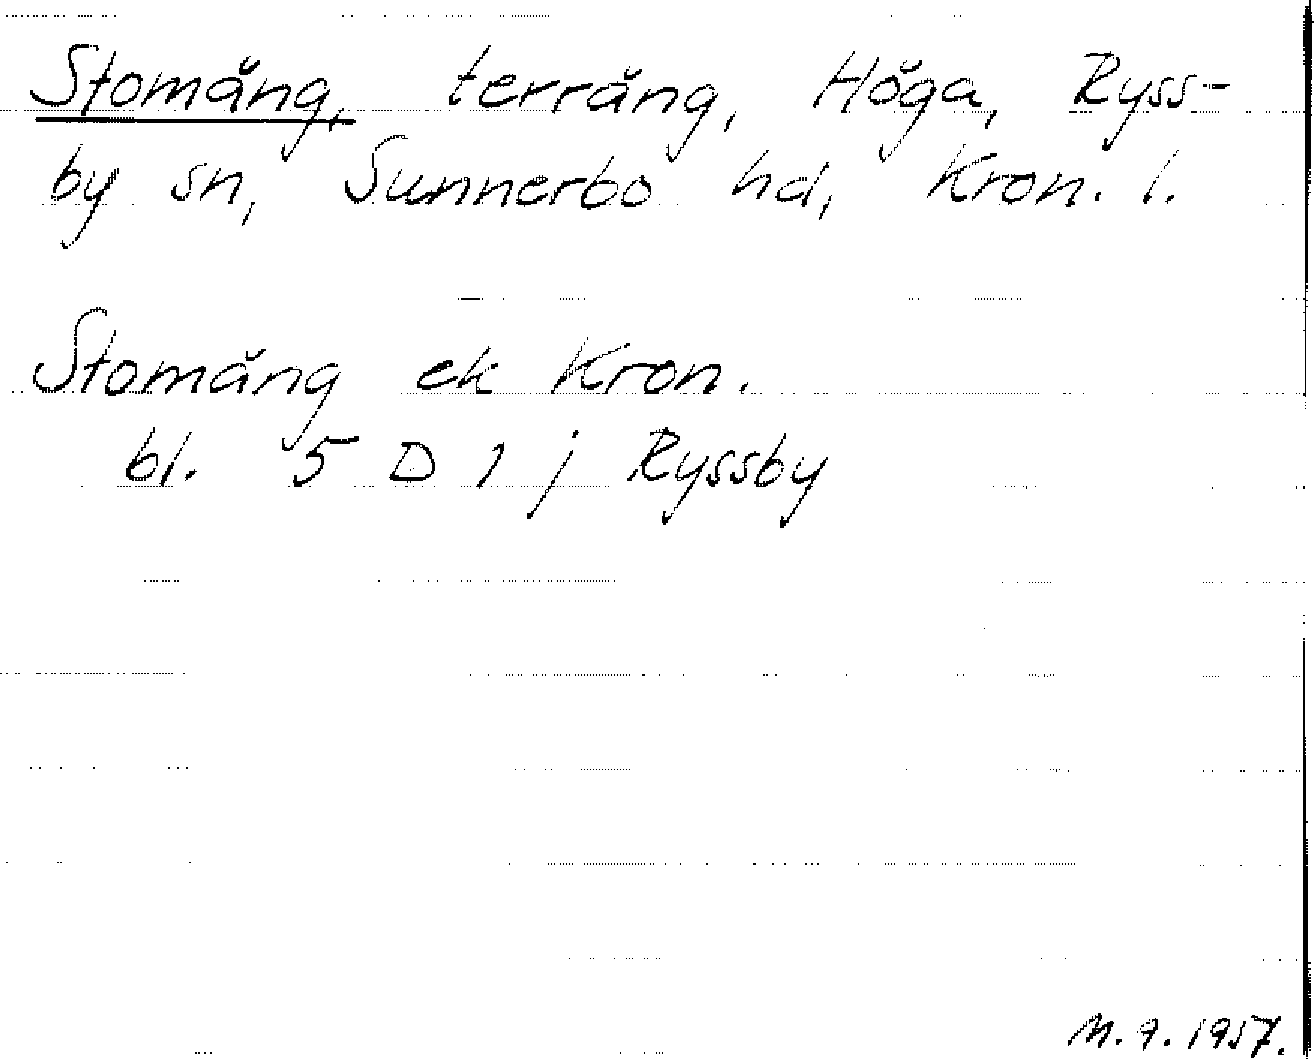 Stomäng, terräng, Höga, Ryss-
by sn, Sunnerbo hd, Kron. l.
Stomäng ek Kron.
bl. 5 D 1 j Ryssby
M. 9. 1957.